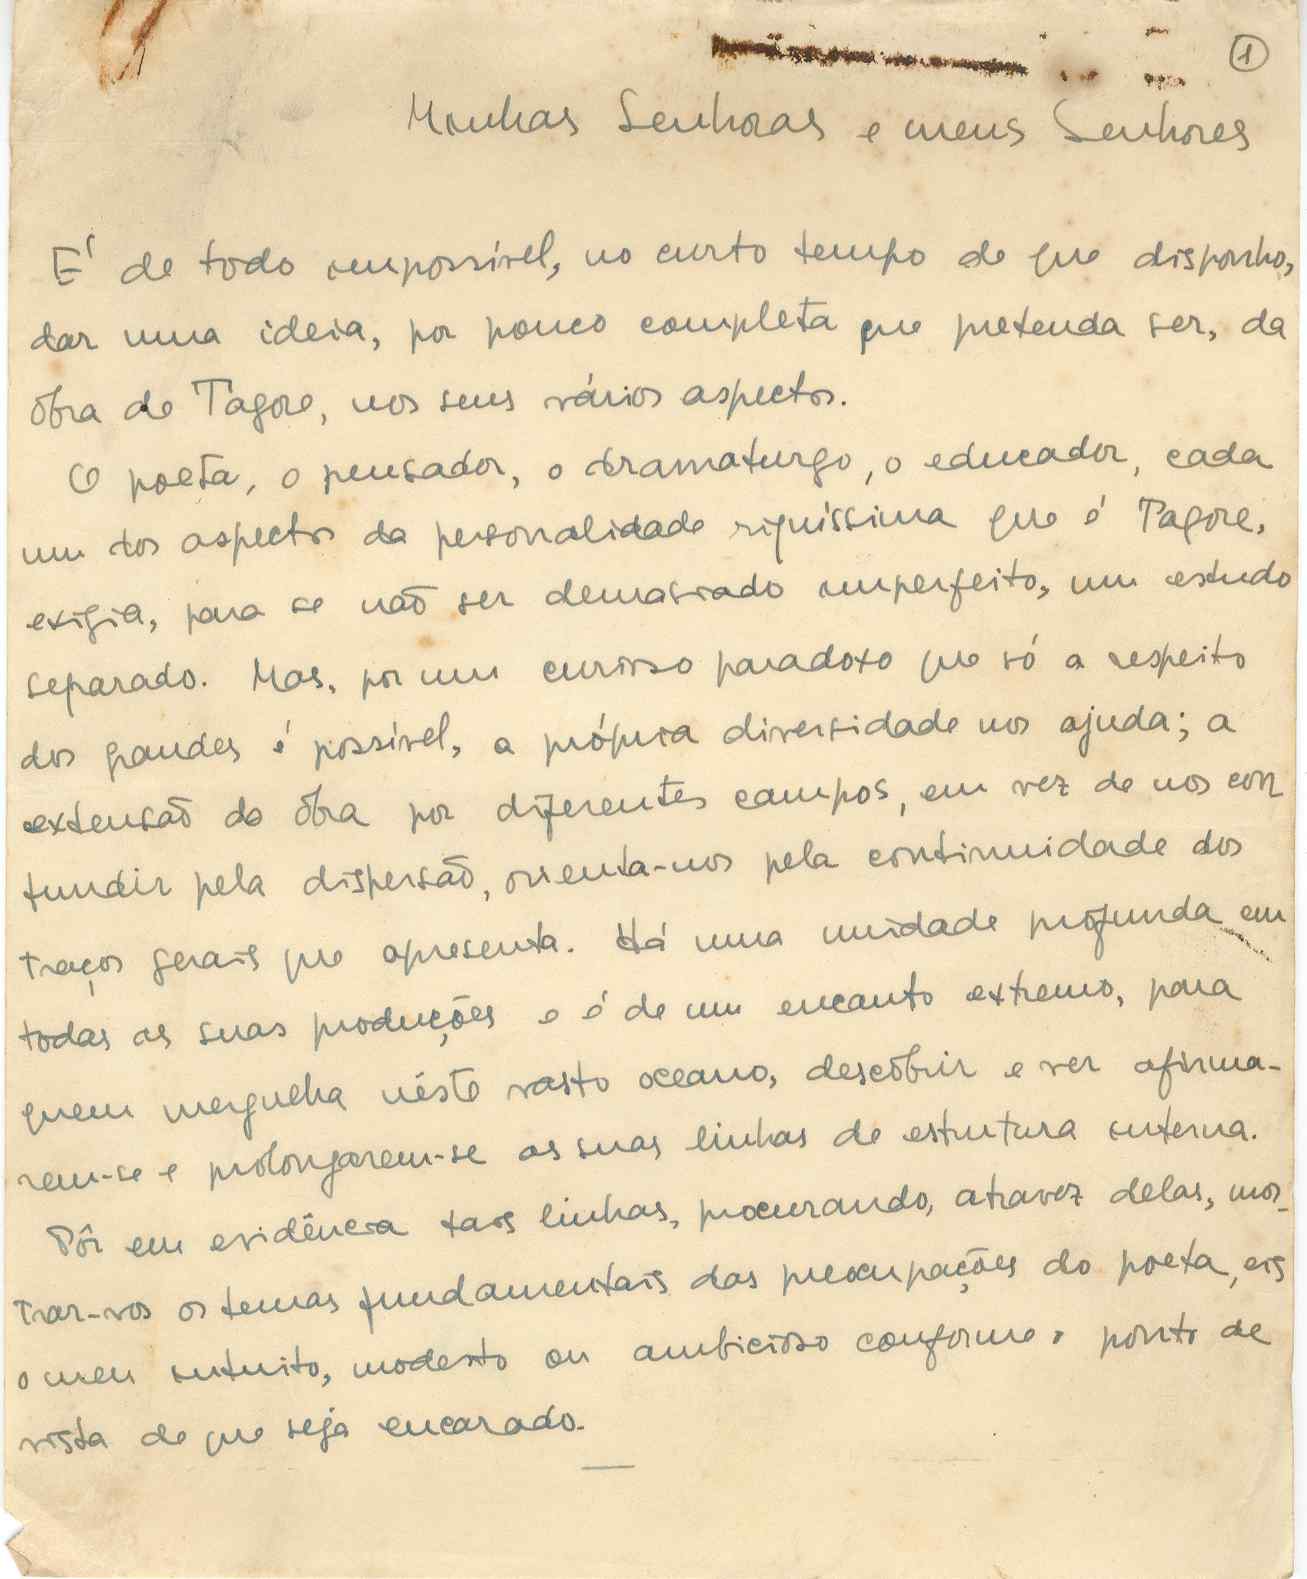 1
Minhas Senhoras e meus Senhores
É de todo impossível, no curto tempo de que disponho,
dar uma ideia, por pouco completa que pretenda ser, da
obra de Tagore, nos seus vários aspectos.
O poeta, o pensador, o dramaturgo, o educador, cada
um dos aspectos da personalidade riquíssima que é Tagore,
exigia, para se não ser demasiado imperfeito, um estudo
separado. Mas, por um curioso paradoxo que só a respeito
dos grandes é possível, a própria diversidade nos ajuda; a
extensão da obra por diferentes campos, em vez de nos con
fundir pela dispersão, orienta-nos pela continuidade dos
traços gerais que apresenta. Há uma unidade profunda em
todas as suas produções e é de um encanto extremo, para
quem mergulha nêste vasto oceano, descobrir e ver afirma-
rem-se e prolongarem-se as suas linhas de estrutura interna.
Pôr em evidência tais linhas, procurando, atravez delas, mos-
trar-vos os temas fundamentais das preocupações do poeta, eis
o meu intuito, modesto ou ambicioso conforme o ponto de
vista de que seja encarado.